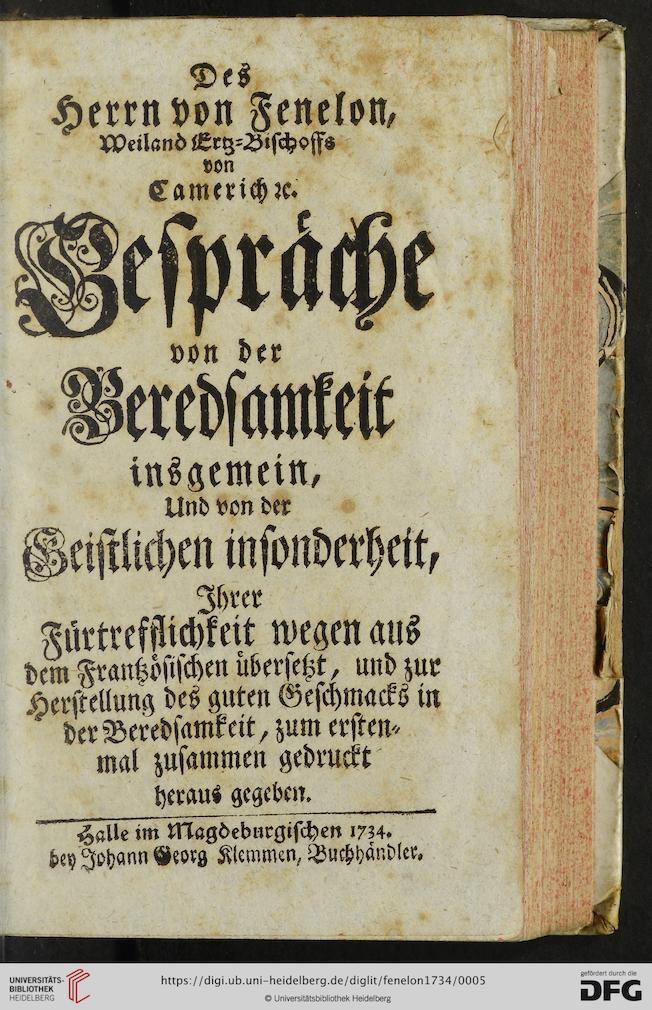 Des
Herrn von Fenelon,
Weiland Ertz-Bischoffs
von
Camerich ꝛc.
Gespräche
von der
Beredsamkeit
insgemein,
Und von der
Geistlichen insonderheit,
Ihrer
Fürtrefflichkeit wegen aus
dem Frantzösischen übersetzt, und zur
Herstellung des guten Geschmacks in
der Beredsamkeit, zum ersten-
mal zusammen gedruckt
heraus gegeben.
Halle im Magdeburgischen 1734.
bey Johann Georg Klemmen, Buchhändler.
UNIVERSITÄTS-
BIBLIOTHEK
HEIDELBERG
https://digi.ub.uni-heidelberg.de/diglit/fenelon1734/0005
© Universitätsbibliothek Heidelberg
gefördert durch die
DFG